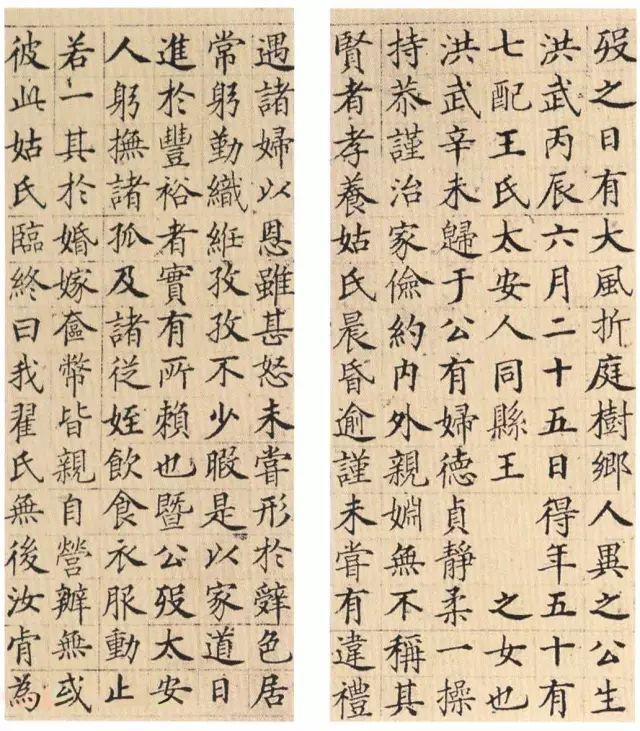 歿之日有大風折庭樹鄉人異之公生
洪武丙辰六月二十五日得年五十有
七配王氏太安人同縣王　之女也
洪武辛未歸于公有婦德貞靜柔一操
持恭謹治家儉約內外親婣無不稱其
賢者孝養姑氏晨昏逾謹未嘗有違禮
遇諸婦以恩雖甚怒未嘗形於辭色居
常躬勤織紝孜孜不少暇是以家道日
進於豐裕者實有所賴也暨公歿太安
人躬撫諸孤及諸從姪飲食衣服動止
若一其於婚嫁奩幣皆親自營辦無或
彼此姑氏臨終曰我翟氏無後汝肯為